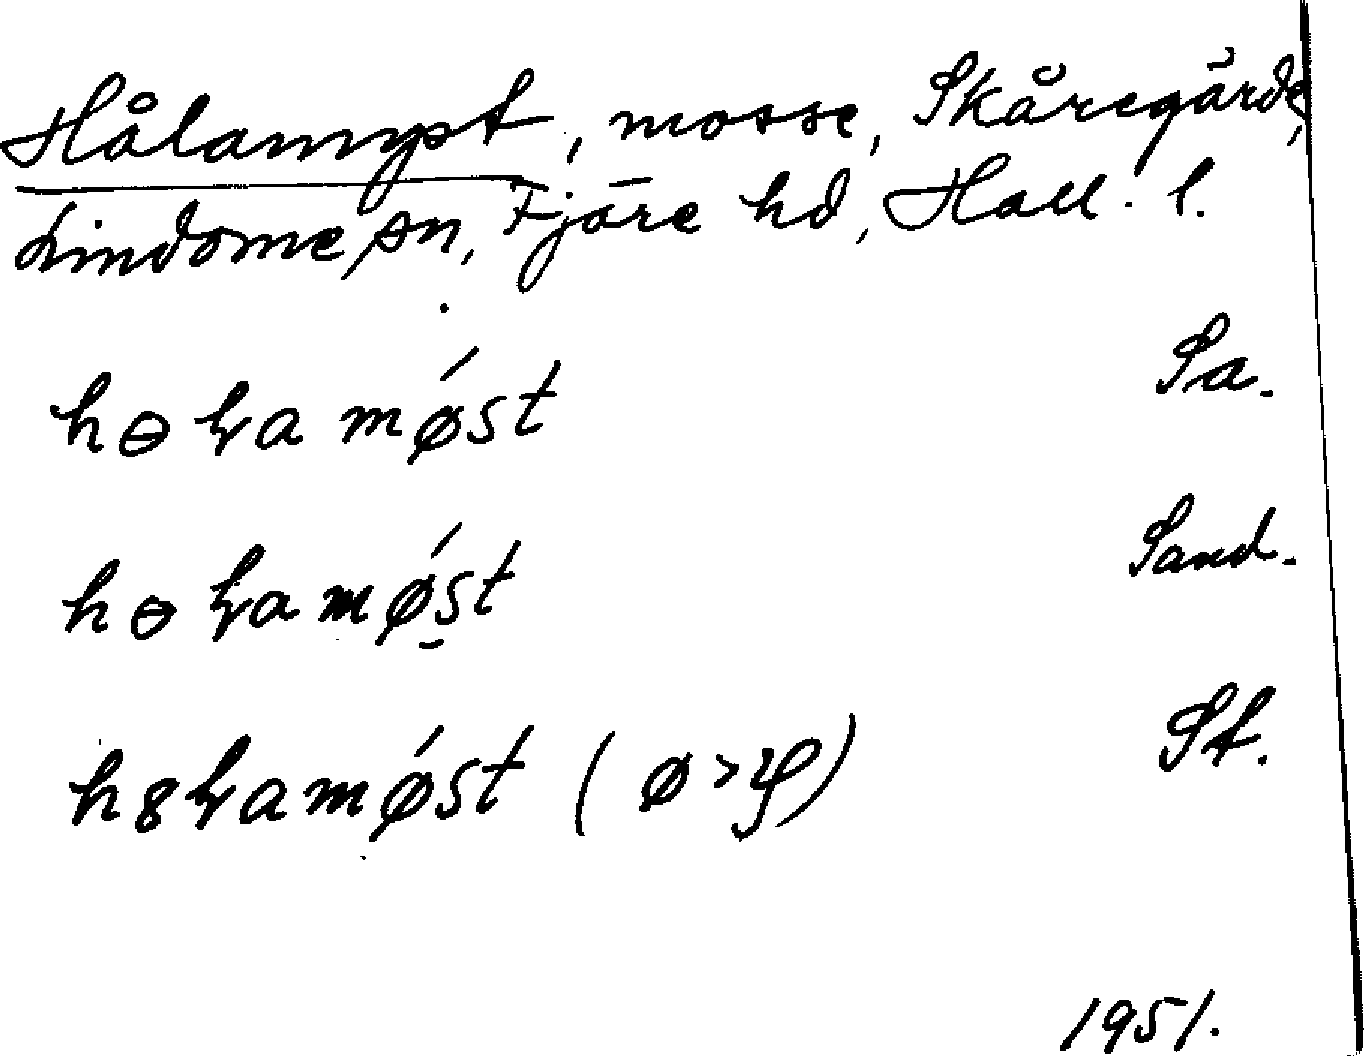 Hålamyst, mosse, Skåregärde,
Lindome sn, Fjäre hd, Hall. l.
hɵɽa møst́ Sa.
hɵɽa møst́ Sand.
h8ɽamøst́ (ø>yφ) St.
1951.